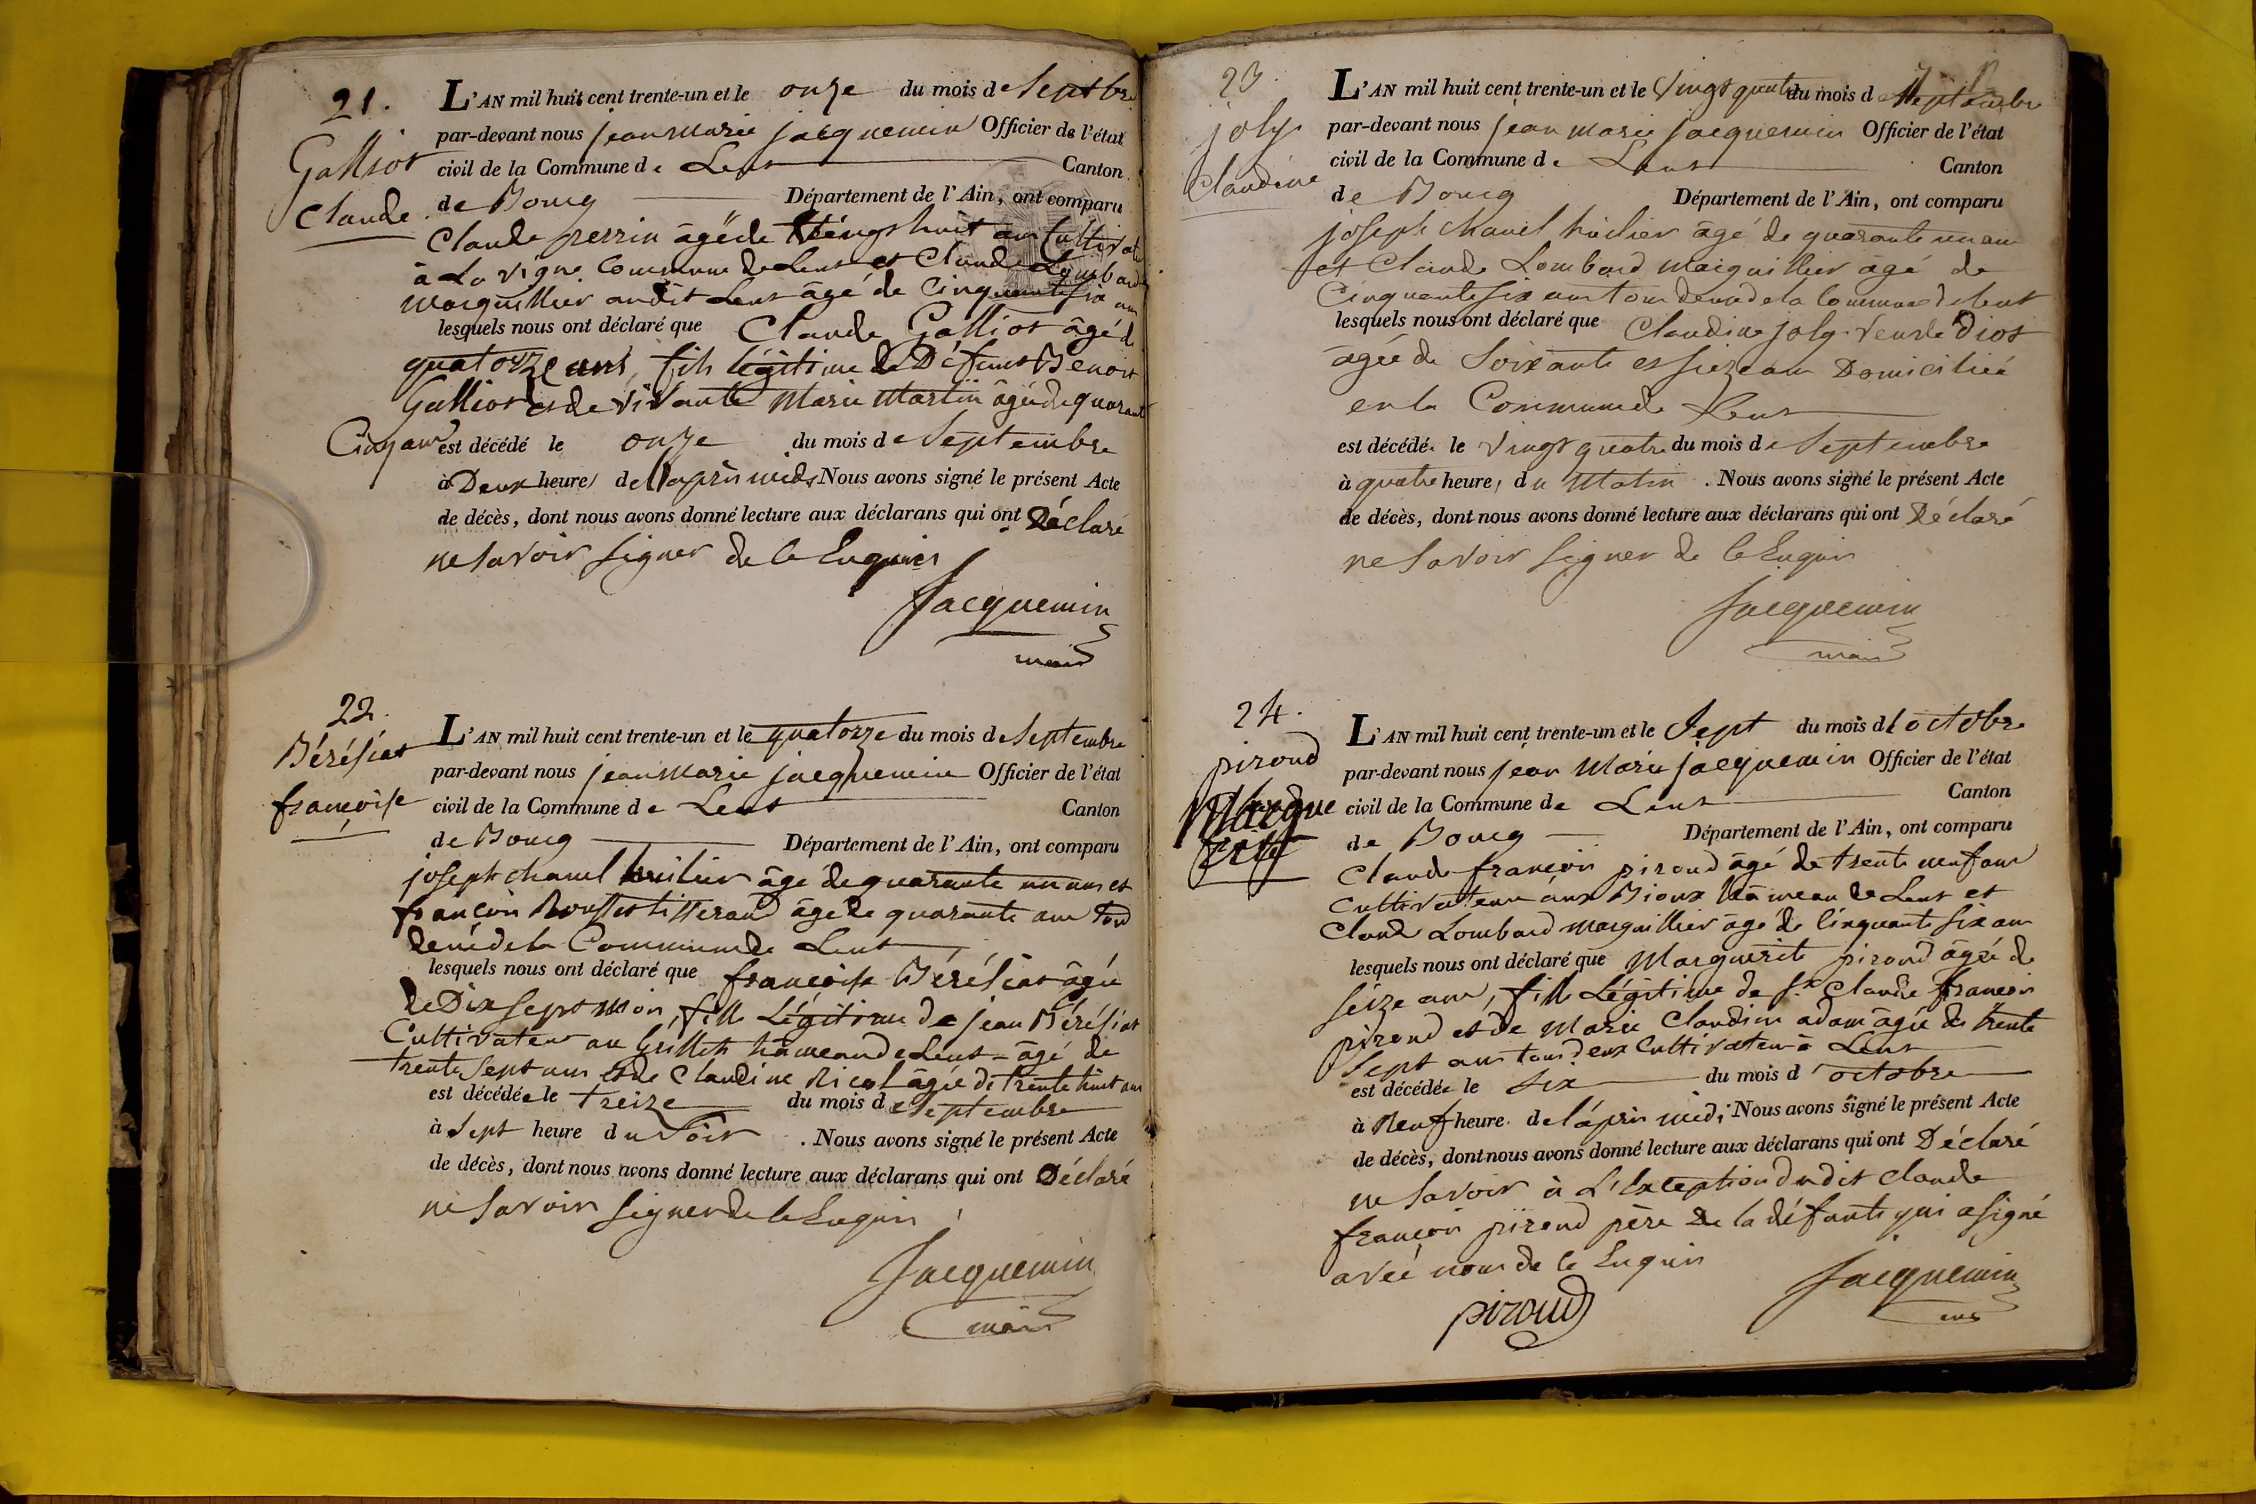 21.
Galliot
Claude
L'AN mil huit cent trente-un et le onze du mois de Septbre
par-devant nous jean marie jacquemin Officier de l'état
civil de la Commune de Lent Canton
de Bourg Département de l'Ain, ont comparu
Claude perrin âgé de vingt huit ans Cultivat
à La vigne Commune de Lent et Claude Lombard
marguillier audit Lent âgé de Cinquante six ans
lesquels nous ont déclaré que Claude Galliot âgé de
quatorze ans, fils légitime de Défunt Benoit
Galliot et de vivante Marie Martin âgée de quarante
Cinq ans est décédé le onze du mois de Septembre
à Deux heures de l'après midi Nous avons signé le présent Acte
de décès, dont nous avons donné lecture aux déclarans qui ont Déclaré
ne Savoir Signer de ce Enquis
Jacquemin
maire
22.
Bérésiat
françoise
L'AN mil huit cent trente-un et le quatorze du mois de Septembre
par-devant nous jean marie jacquemin Officier de l'état
civil de la Commune de Lent Canton
de Bourg Département de l'Ain, ont comparu
joseph chanel huilier âgé de quarante un ans et
françois tisserand âgé de quarante ans tous
deux de la Commune de Lent
lesquels nous ont déclaré que françoise Bérésiat âgée
de Dix Sept mois, fille Légitime de jean Bérésiat
Cultivateur au Grillets hâmeau de Lent âgé de
trente Sept ans et de Claudine Nicol âgée de trente huit ans
est décédée le treize du mois de Septembre
à Sept heure du Soir . Nous avons signé le présent Acte
de décès, dont nous avons donné lecture aux déclarans qui ont Déclaré
ne Savoir Signer de ce Enquis
Jacquemin
maire
23
joly
Claudine
L'AN mil huit cent trente-un et le Vingt quatre du mois de Septembre
par-devant nous jean marie jacquemin Officier de l'état
civil de la Commune de Lent Canton
de Bourg Département de l'Ain, ont comparu
joseph chanel huilier âgé de quarante un ans
et Claude Lombard Marguillier âgé de
Cinquante six ans tous deux de la Commune de Lent
lesquels nous ont déclaré que Claudine joly veuve Diot
âgée de Soixante et Seize ans Domiciliée
en la Commune de Lent
est décédée le vingt quatre du mois de Septembre
à quatre heures du Matin . Nous avons signé le présent Acte
de décès, dont nous avons donné lecture aux déclarans qui ont Déclaré
ne Savoir Signer de ce Enquis
Jacquemin
maire
24.
piroud
Margue
rite
L'AN mil huit cent trente-un et le Sept du mois d'octobre
par-devant nous jean Marie jacquemin Officier de l'état
civil de la Commune de Lent Canton
de Bourg Département de l'Ain, ont comparu
Claude françois piroud âgé de trente neuf ans
Cultivateur aux Bioux hâmeau de Lent et
Claude Lombard marguillier âgé de Cinquante Six ans
lesquels nous ont déclaré que Marguerite piroud âgée de
Seize ans, fille Légitime de Sr. Claude françois
piroud et de Marie Claudine adam âgée de trente
Sept ans tous deux Cultivateur à Lent
est décédée le Six du mois d'octobre
à Neuf heure de l'après midi Nous avons signé le présent Acte
de décès, dont nous avons donné lecture aux déclarans qui ont Déclaré
ne Savoir à L'Exception dudit Claude
françois piroud père de la défunte qui a Signé
avec nous de ce Enquis
piroud
Jacquemin